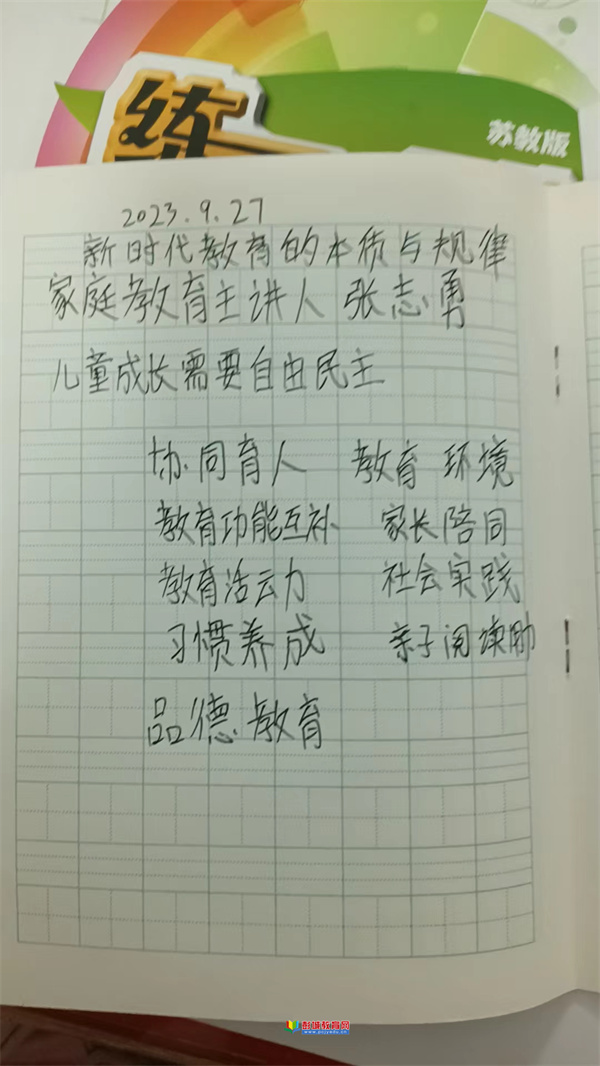 练
苏教版
2023.9.27
新时代教育的本质与规律
家庭教育主讲人 张志勇
儿童成长需要自由民主
协同育人 教育环境
教育功能互补 家长陪同
教育活动力 社会实践
习惯养成 亲子阅读
品德教育
彭城教育网